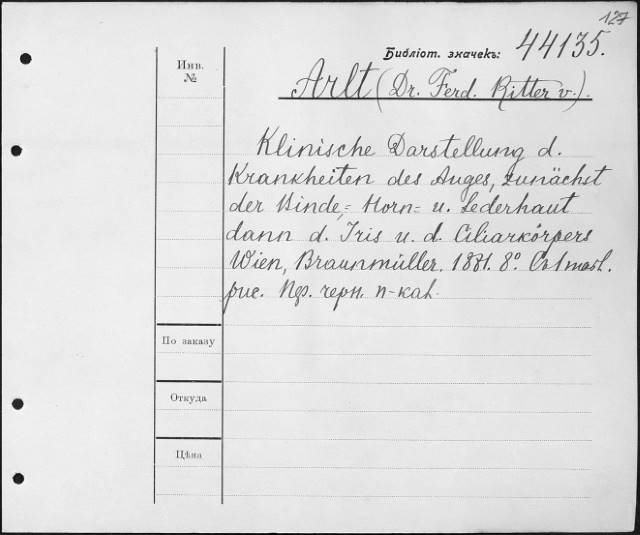 127
Библіот. значекъ: 44135.
Инв.
№
Arlt (Dr. Ferd. Ritter v.).
Klinische Darstellung d.
Krankheiten des Auges, zunächst
der Binde,- Horn- u. Lederhaut
dann d. Iris u. d. Ciliarkörpers
Wien, Braunmüller. 1881. 8°.
рис. черн. п-кал.
По заказу
Откуда
Цѣна